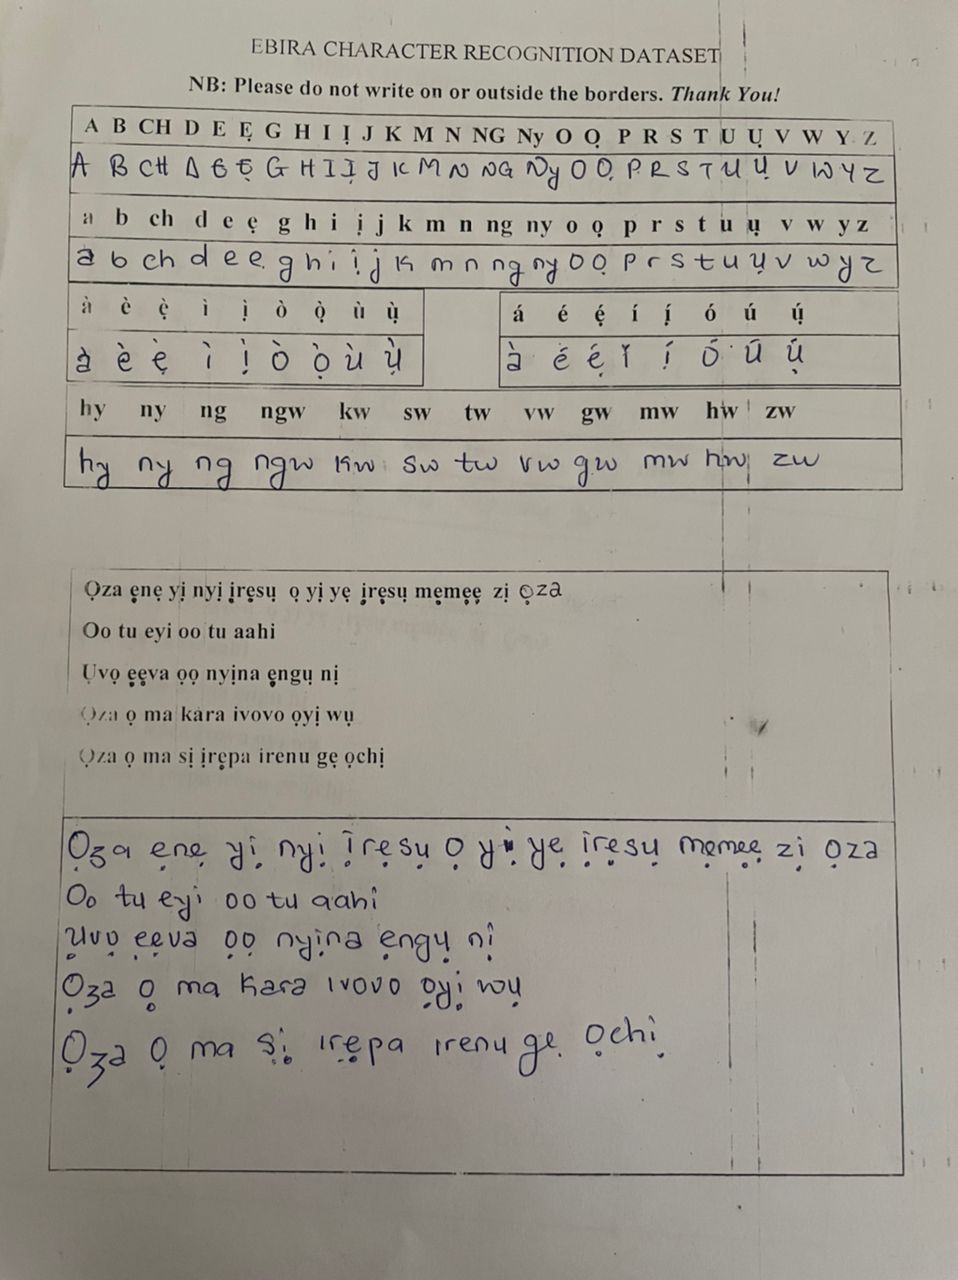 EBIRA CHARACTER RECOGNITION DATASET
NB: Please do not write on or outside the borders. Thank You!
A B CH D E Ẹ G H I Ị J K M N NG Ny O Ọ P R S T U Ụ V W Y Z
A B CH D E Ẹ G H I Ị J K M N NG Ny O Ọ P R S T U Ụ V W Y Z
a b ch d e ẹ g h i ị j k m n ng ny o ọ p r s t u ụ v w y z
a b ch d e ẹ g h i ị j k m n ng ny o ọ p r s t u ụ v w y z
à è ẹ̀ ì ị̀ ò ọ̀ ù ụ̀ á é ẹ́ í ị́ ó ú ụ́
à è ẹ̀ ì ị̀ ò ọ̀ ù ụ̀ à é ẹ́ í ị́ ó ú ụ́
hy ny ng ngw kw sw tw vw gw mw hw zw
hy ny ng ngw kw sw tw vw gw mw hw zw
Ọza ẹnẹ yị nyị ịrẹsụ ọ yị yẹ ịrẹsụ mẹmẹẹ zị ọza
Oo tu eyi oo tu aahi
Ụvọ ẹẹva ọọ nyịna ẹngụ nị
Ọza ọ ma kara ivovo ọyị wụ
Ọza ọ ma sị ịrẹpa irenu gẹ ọchị
Ọza ẹnẹ yị nyị ịrẹsụ ọ yị yẹ ịrẹsụ mẹmẹẹ zị ọza
Oo tu eyi oo tu aahi
Ụvọ ẹẹva ọọ nyịna ẹngụ nị
Ọza ọ ma kara ivovo ọyị wụ
Ọza ọ ma sị ịrẹpa irenu gẹ ọchị